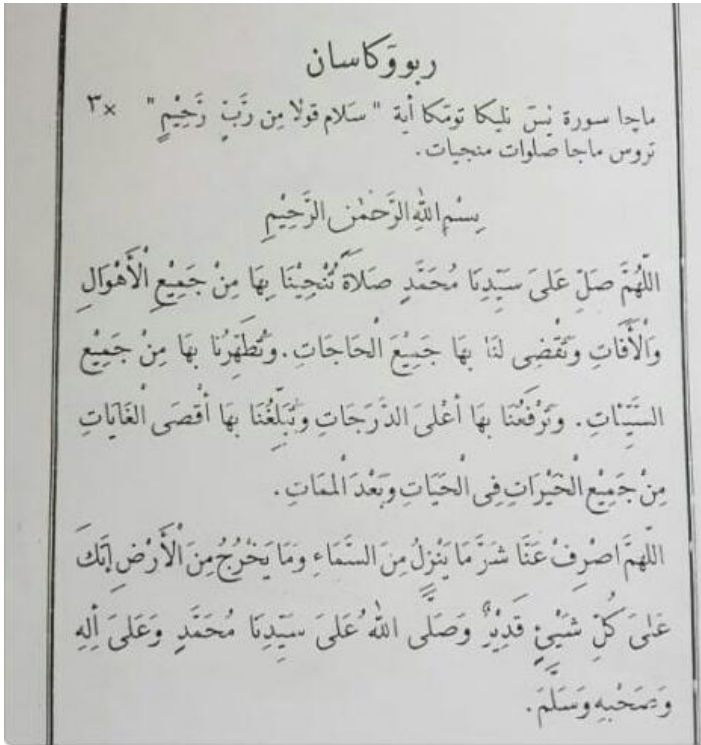 ربووكاسان
ماچا سورة يٰسٓ تليكا تومكا أية " سَلَام قَوْلًا مِن رَّبٍّ رَّحِيْمٍ " ×٣
تروس ماچا صلوات منجيات.
بِسْمِ اللهِ الرَّحْمٰنِ الرَّحِيْمِ
اللّٰهُمَّ صَلِّ عَلىَ سَيِّدِنَا مُحَمَّدٍ صَلاَةً تُنْجِيْنَا بِهَا مِنْ جَمِيْعِ الْأَهْوَالِ
وَالْأَفَاتِ وَتَقْضِى لَنَا بِهَا جَمِيْعَ الْحَاجَاتِ. وَتُطَهِّرُنَا بِهَا مِنْ جَمِيْعِ
السَّيِّئَاتِ. وَتَرْفَعُنَا بِهَا أَعْلىَ الدَّرَجَاتِ وَتُبَلِّغُنَا بِهَا أَقْصَى الْغَايَاتِ
مِنْ جَمِيْعِ الْخَيْرَاتِ فِى الْحَيَاتِ وَبَعْدَ الْمَمَاتِ.
اللّٰهُمَّ اصْرِفْ عَنَّا شَرَّ مَا يَنْزِلُ مِنَ السَّمَاءِ وَمَا يَخْرُجُ مِنَ الْأَرْضِ إِنَّكَ
عَلىَ كُلِّ شَيْئٍ قَدِيْرٌ وَصَلَّى اللهُ عَلىَ سَيِّدِنَا مُحَمَّدٍ وَعَلىَ أَلِهِ
وَصَحْبِهِ وَسَلَّمَ.